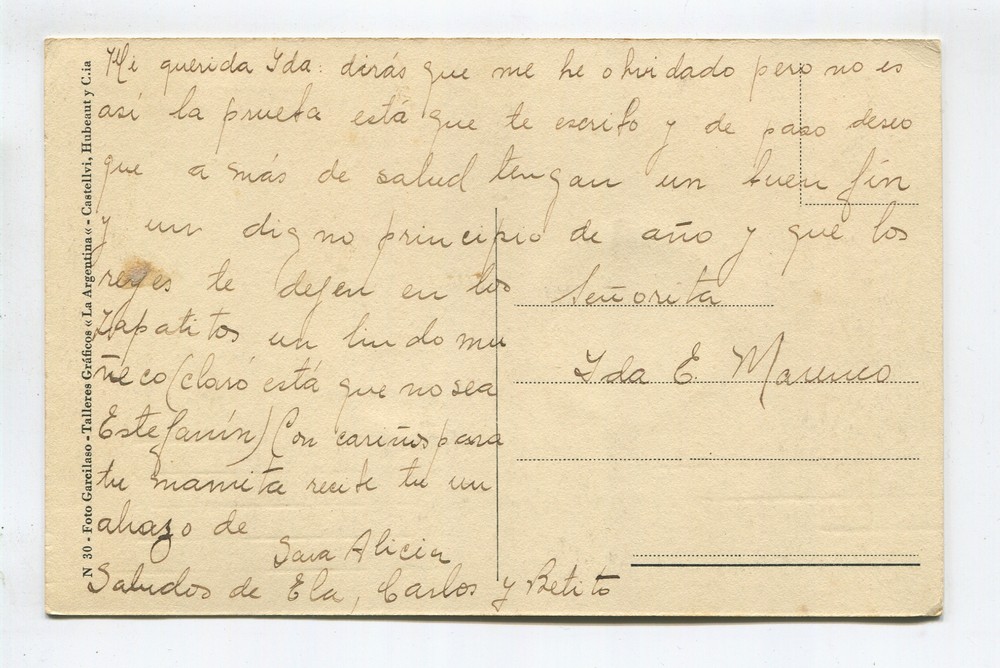 Mi querida Yda: dirás que me he olvidado pero no es
así la prueba está que te escribo y de paso deseo
que a más de salud tengan un buen fin
y un digno principio de año y que los
reyes te dejen en los
zapatitos un lindo mu
ñeco (claro está que no sea
Estefanín) Con cariños para
tu mamita recibe tu un
abrazo de
Sara Alicia
Saludos de Ela, Carlos y Betito
Señorita
Yda E. Marenco
N 30 - Foto Garcilaso - Talleres Gráficos « La Argentina « - Castellvi, Hubeaut y C.ia